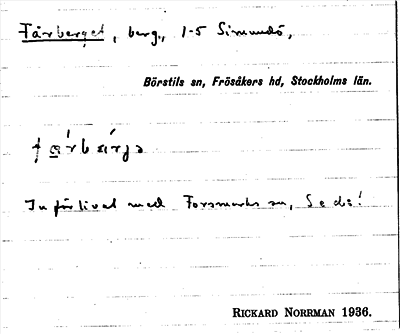 Fårberget, berg, 1-5 Simundö,
Börstils sn, Frösåkers hd, Stockholms län.
Införlivat med Forsmarks sn, Se d:o!
RICKARD NORRMAN 1936.